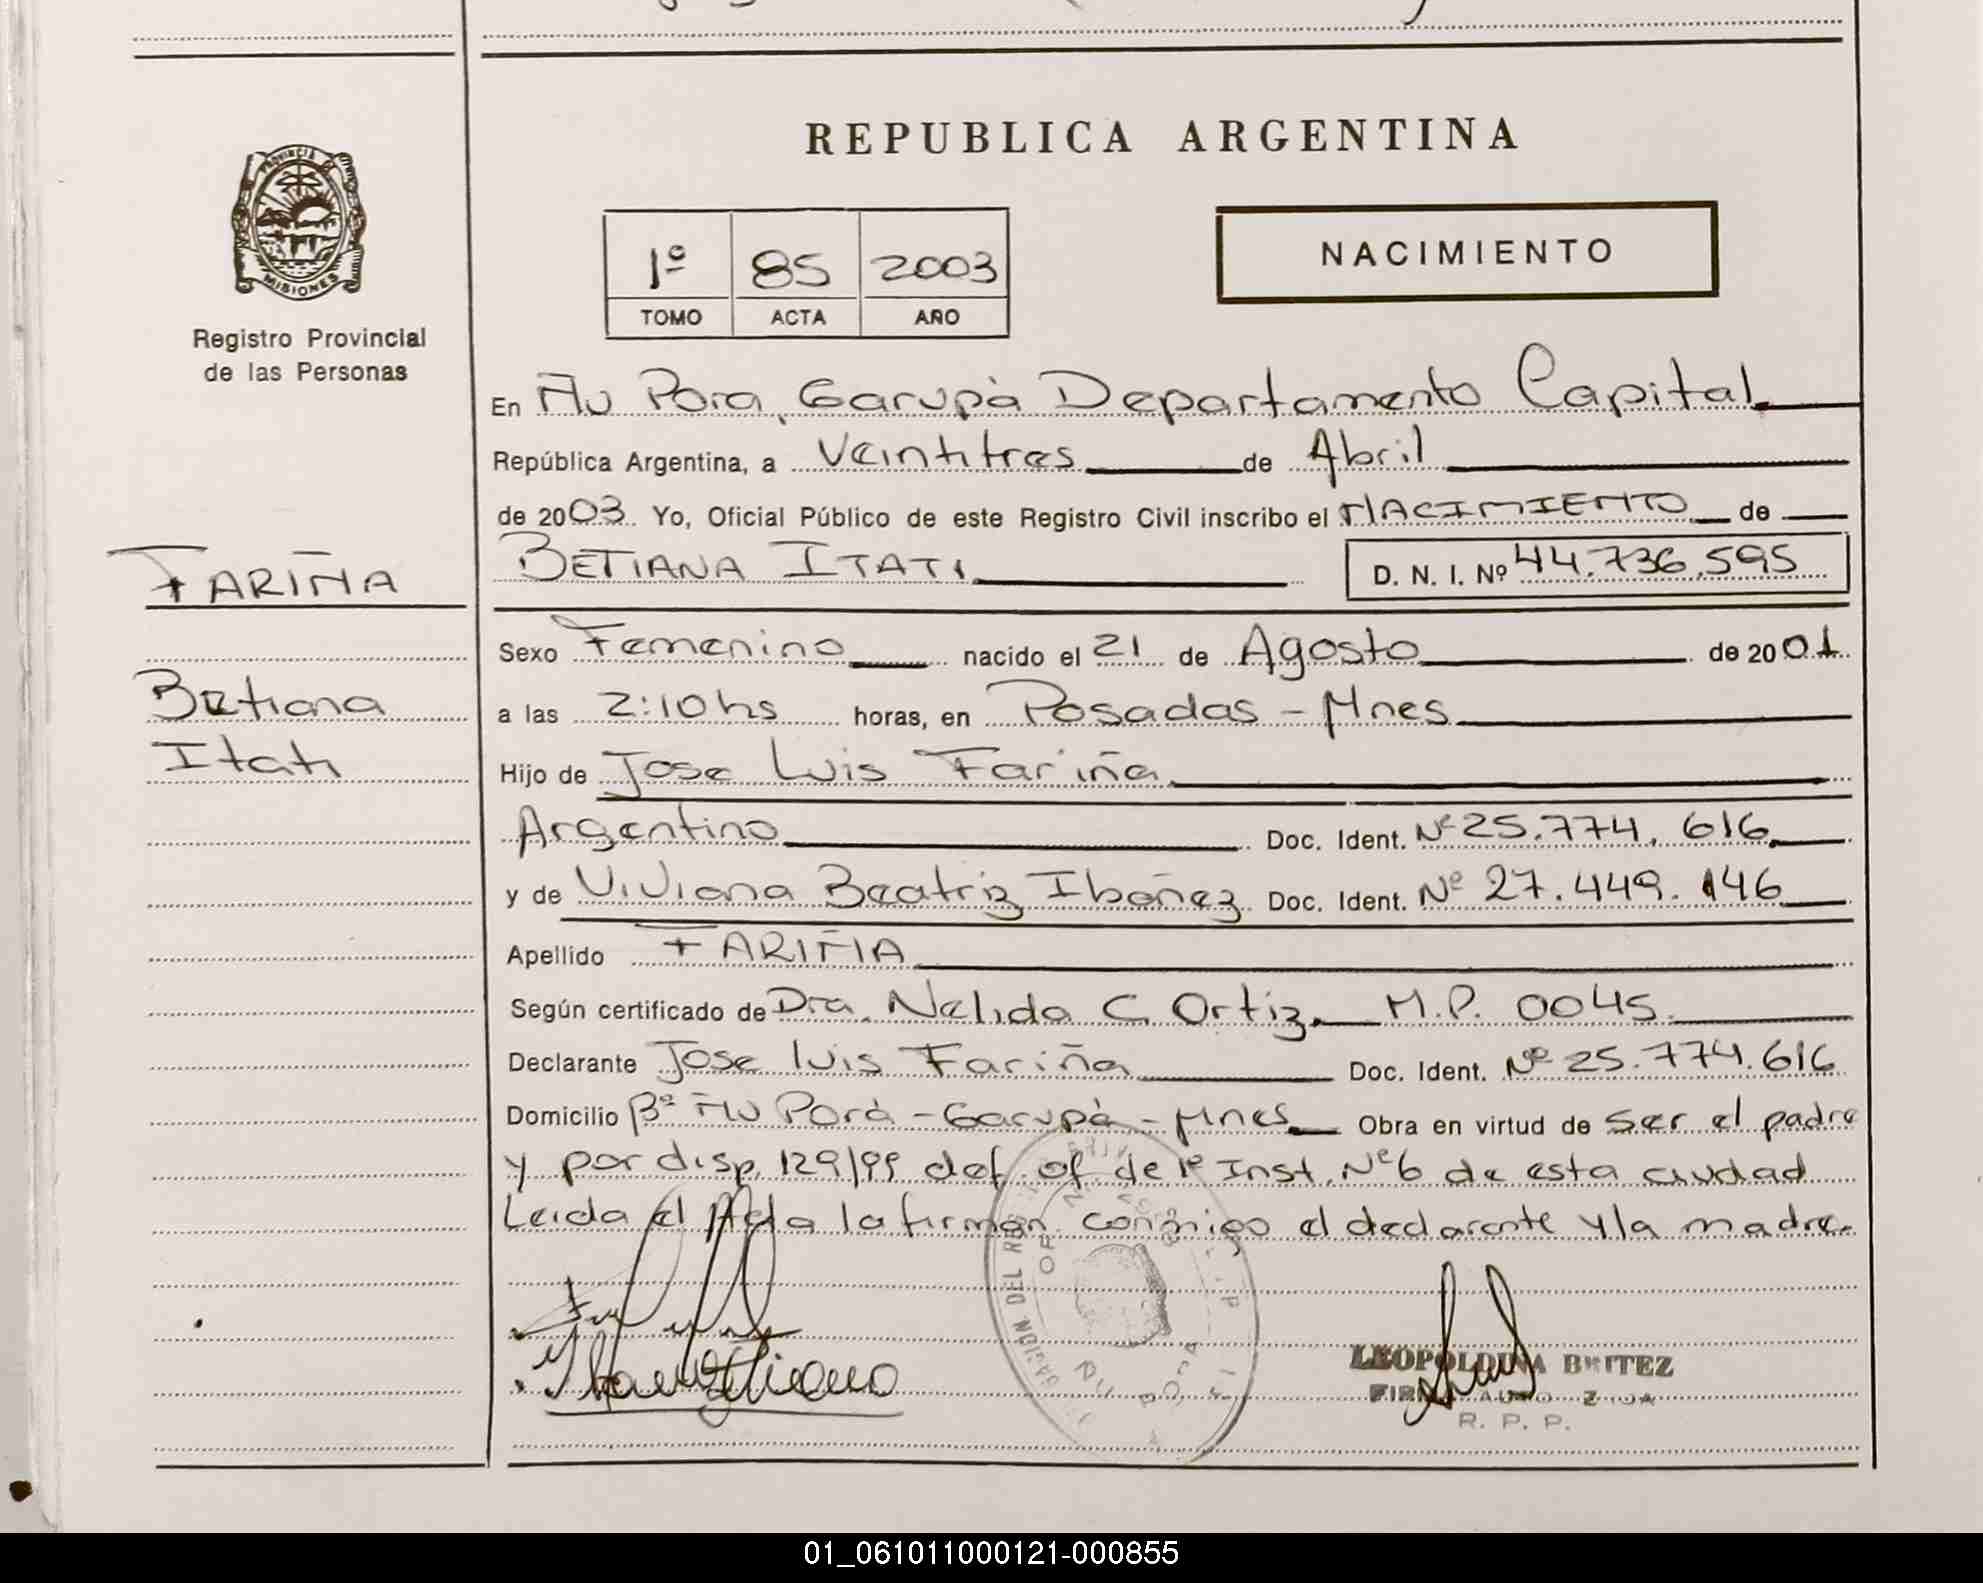 REPUBLICA ARGENTINA
PROVINCIA DE MISIONES
Registro Provincial
de las Personas
1º 85 2003
TOMO ACTA AÑO
NACIMIENTO
En Ñu Pora, Garupà Departamento Capital
República Argentina, a Veintitres de Abril
de 2003. Yo, Oficial Público de este Registro Civil inscribo el NACIMIENTO de
FARIÑA
BETIANA ITATI D. N. I. Nº 44.736.595
Sexo Femenino nacido el 21 de Agosto de 2001
Betiana
a las 2:10 hs horas, en Posadas - Mnes
Itati
Hijo de Jose Luis Fariña
Argentino Doc. Ident. Nº 25.774.616
y de Viviana Beatriz Ibañez Doc. Ident. Nº 27.449.146
Apellido FARIÑA
Según certificado de Dra. Nelida C. Ortiz. M.P. 0045
Declarante Jose luis Fariña Doc. Ident. Nº 25.774.616
Domicilio Bº Ñu Porà - Garupà - Mnes Obra en virtud de ser el padre
y por disp. 129/99 def. of. de 1º Inst. Nº 6 de esta ciudad
Leida el Acta la firman conmigo el declarante y la madre.
LEOPOLDINA BRITEZ
FIRMA AUTORIZADA
R. P. P.
01_061011000121-000855